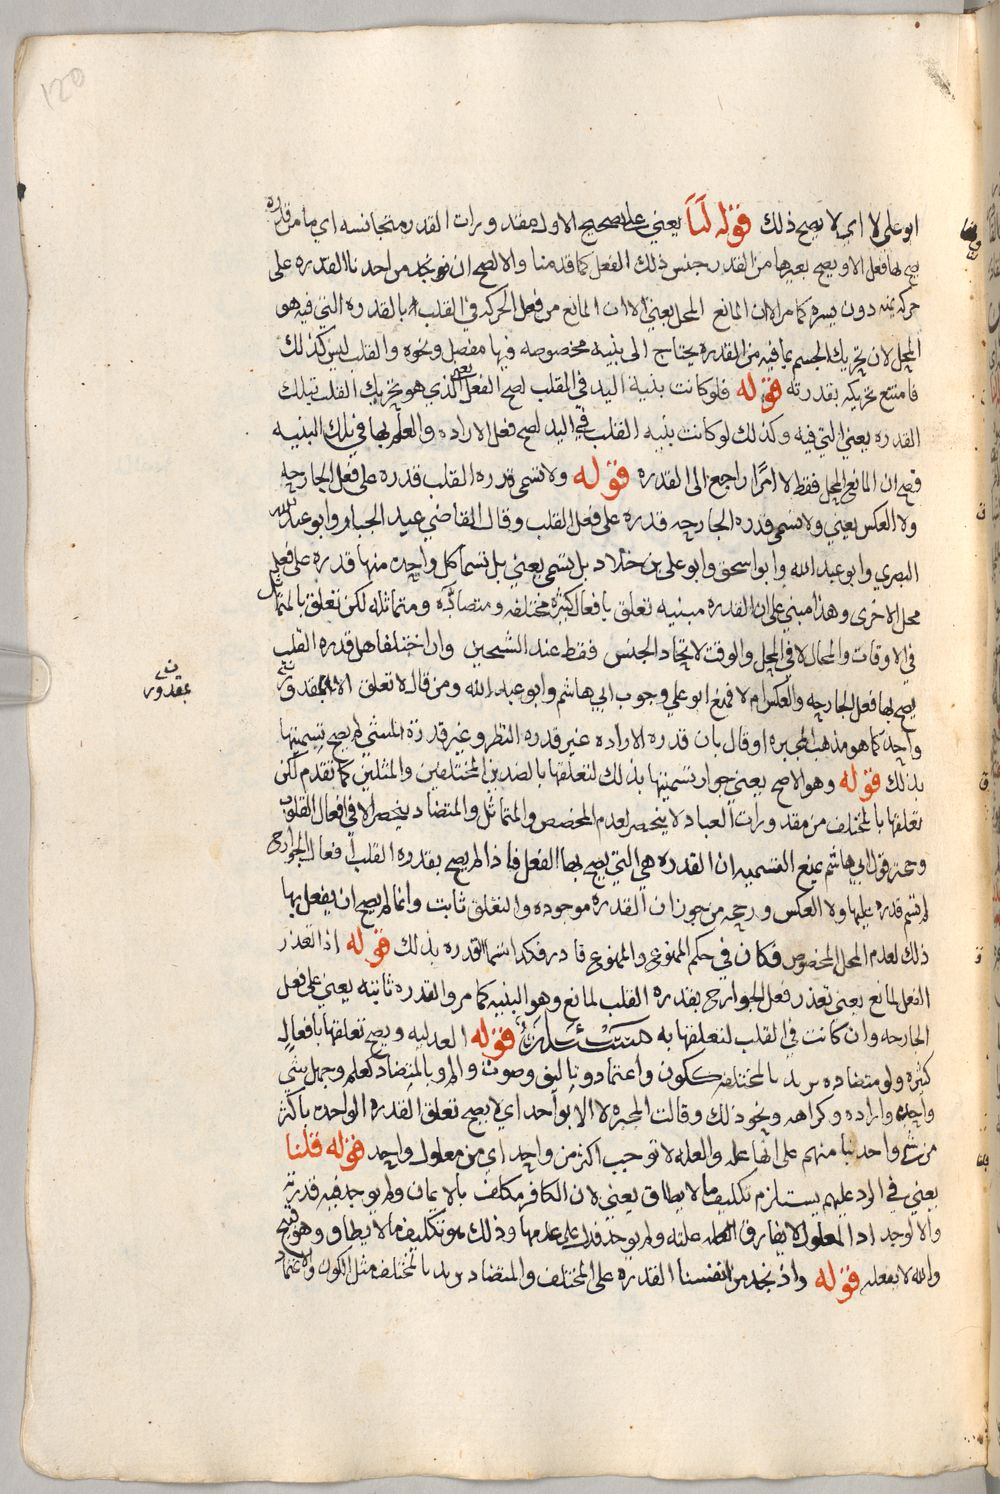 120
ابو على لا اى لا يصح ذلك قوله لنا يعني على تصحيح الاول مقدورات القدر متجانسه اي ما من قدره
يصح بها فعل الا ويصح بغيرها من القدر جنس ذلك الفعل كما قدمنا والا لصح ان نجد من احدنا القدره على
حركه يمنه دون يسره كما مر الا ان المانع المحل يعني الا ان المانع من فعل الحركه في القلب بالقدره التي فيه هو
المحل لان تحريك الجسم بما فيه من القدره يحتاج الى بنيه مخصوصه فيها مفصل ونحوه والقلب ليس كذلك
فامتنع تحريكه بقدرته قوله فلو كانت بنية اليد في القلب لصح الفعل يعني الذي هو تحريك القلب بتلك
القدره يعني التي فيه وكذلك لو كانت بنيه القلب في اليد لصح فعل الاراده والعلم بها في تلك البنيه
فصح ان المانع المحل فقط لا امرًا راجع الى القدره قوله ولا تسمى قدره القلب قدره على فعل الجارحه
ولا العكس يعني ولا تسمى قدره الجارحه قدره على فعل القلب وقال القاضي عبد الجبار وابو عبد الله
البصري وابو عبد الله وابو اسحق وابو على بن خلاد بل تسمى يعني بل تسما كل واحده منها قدره على فعل
محل الاخرى وهذا مبني على ان القدره مبنيه تعلق بافعال كثيره مختلفه ومتضاده ومتماثله لكن تعلق بالمتماثل
في الاوقات والمحال لا في المحل والوقت لاتحاد الجنس فقط عند الشيخين وان اختلفا هل قدره القلب
يصح بها فعل الجارحه والعكس ام لا فمنع ابو على وجوب ابي هاشم وابو عبد الله ومن قال لا تعلق الا بمقدور
بمقدور
واحد كما هو مذهب المجبره او قال بان قدره الاراده غير قدره النظر وغير قدرة المشي لم يصح تسميتها
بذلك قوله وهو الاصح يعني جواز تسميتها بذلك لتعلقها بالضدين المختلفين والمثلين كما تقدم لكن
تعلقها بالمختلف من مقدورات العباد لا ينحصر لعدم المخصص والمتماثل والمتضاد ينحصر الا في افعال القلوب
وحجة قول ابي هاشم بمنع التسميه ان القدره هي التي يصح بها الفعل فاذا لم يصح بقدره القلب افعال الجوارح
لم تسم قدره عليها ولا العكس وحجه من جوز ان القدره موجوده والتعلق ثابت وانما لم يصح ان يفعل بها
ذلك لعدم المحل المخصوص فكان في حكم الممنوع والممنوع قادر فكذا تسما القدره بذلك قوله اذا تعذر
الفعل لمانع يعني تعذر فعل الجوارح بقدره القلب لمانع وهو البنيه كما مر والقدره ثابته يعني على فعل
الجارحه وان كانت في القلب لتعلقها به مسئلة قوله العدليه ويصح تعلقها بافعال
كثيره ولو متضاده يريد بالمختلفه ككون واعتماد وتاليف وصوت والم وبالمتضاد كعلم وجهل بشي
واحد واراده وكراهه ونحو ذلك وقالت المجبره لا الا بواحد اي لا يصح تعلق القدره الواحده باكثر
من شي واحد بنا منهم على انها عله والعله لا توجب اكثر من واحد اي من معلول واحد قوله قلنا
يعني في الرد عليهم يستلزم تكليف ما لا يطاق يعني لان الكافر مكلف بالايمان ولم يوجد فيه قدرته
والا لوجد اذ المعلول لا يفارق العله علته ولم يوجد فدل على عدمها وذلك هو تكليف ما لا يطاق وهو قبيح
والله لا يفعله قوله واذ نجد من انفسنا القدره على المختلف والمتضاد يريد بالمختلف مثل الكون والاعتماد